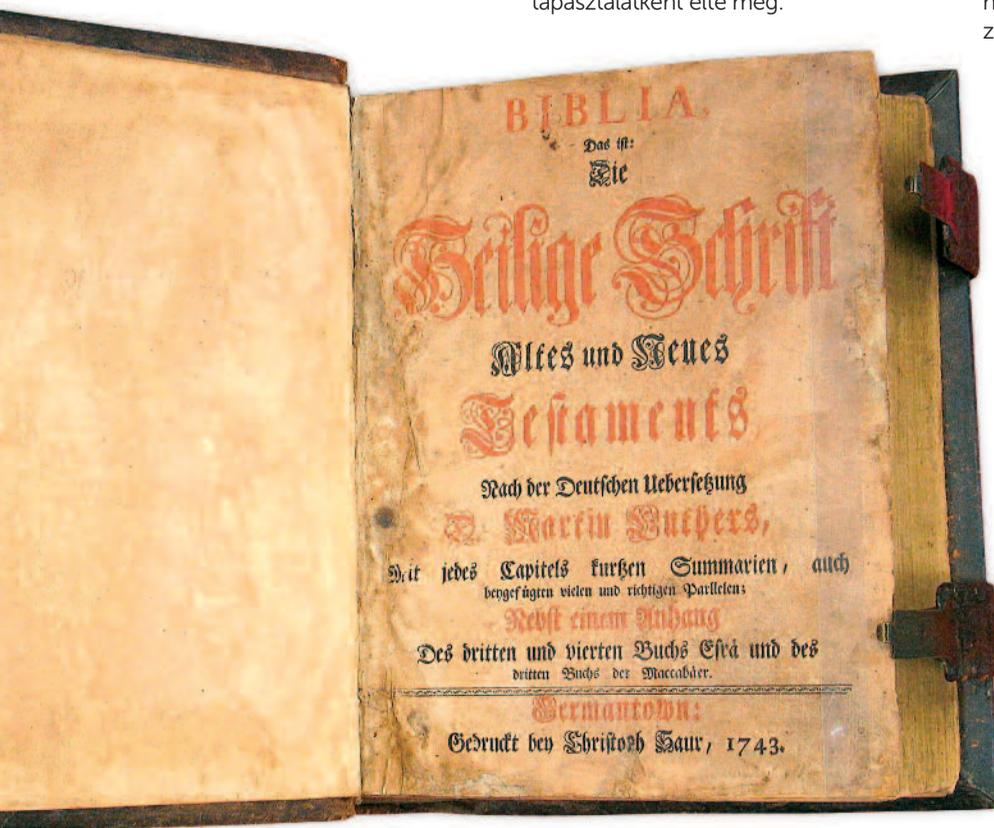 tapasztalatként élte meg.
z
BIBLIA,
Das ist:
Die
Heilige Schrift
Altes und Neues
Testaments
Nach der Deutschen Uebersetzung
D. Martin Luthers,
Mit jedes Capitels kurtzen Summarien, auch
beygefügten vielen und richtigen Parllelen;
Nebst einem Anhang
Des dritten und vierten Buchs Esrä und des
dritten Buchs der Maccabäer.
Germantown:
Gedruckt bey Christoph Saur, 1743.